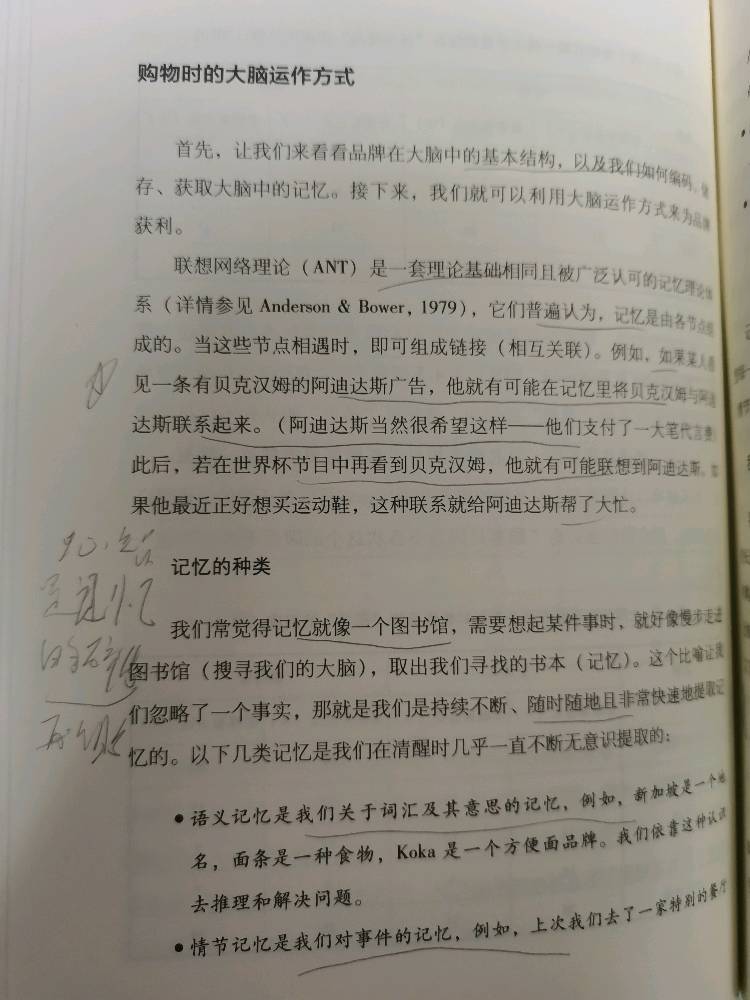 购物时的大脑运作方式
首先，让我们来看看品牌在大脑中的基本结构，以及我们如何编码、储
存、获取大脑中的记忆。接下来，我们就可以利用大脑运作方式来为品牌
获利。
联想网络理论（ANT）是一套理论基础相同且被广泛认可的记忆理论体
系（详情参见 Anderson & Bower, 1979），它们普遍认为，记忆是由各节点组
成的。当这些节点相遇时，即可组成链接（相互关联）。例如，如果某人看
见一条有贝克汉姆的阿迪达斯广告，他就有可能在记忆里将贝克汉姆与阿迪
达斯联系起来。（阿迪达斯当然很希望这样——他们支付了一大笔代言费）
此后，若在世界杯节目中再看到贝克汉姆，他就有可能联想到阿迪达斯。如
果他最近正好想买运动鞋，这种联系就给阿迪达斯帮了大忙。
记忆的种类
我们常觉得记忆就像一个图书馆，需要想起某件事时，就好像慢步走进
图书馆（搜寻我们的大脑），取出我们寻找的书本（记忆）。这个比喻让我
们忽略了一个事实，那就是我们是持续不断、随时随地且非常快速地提取记
忆的。以下几类记忆是我们在清醒时几乎一直不断无意识提取的：
• 语义记忆是我们关于词汇及其意思的记忆，例如，新加坡是一个地
名，面条是一种食物，Koka 是一个方便面品牌。我们依靠这种认识
去推理和解决问题。
• 情节记忆是我们对事件的记忆，例如，上次我们去了一家特别的餐厅